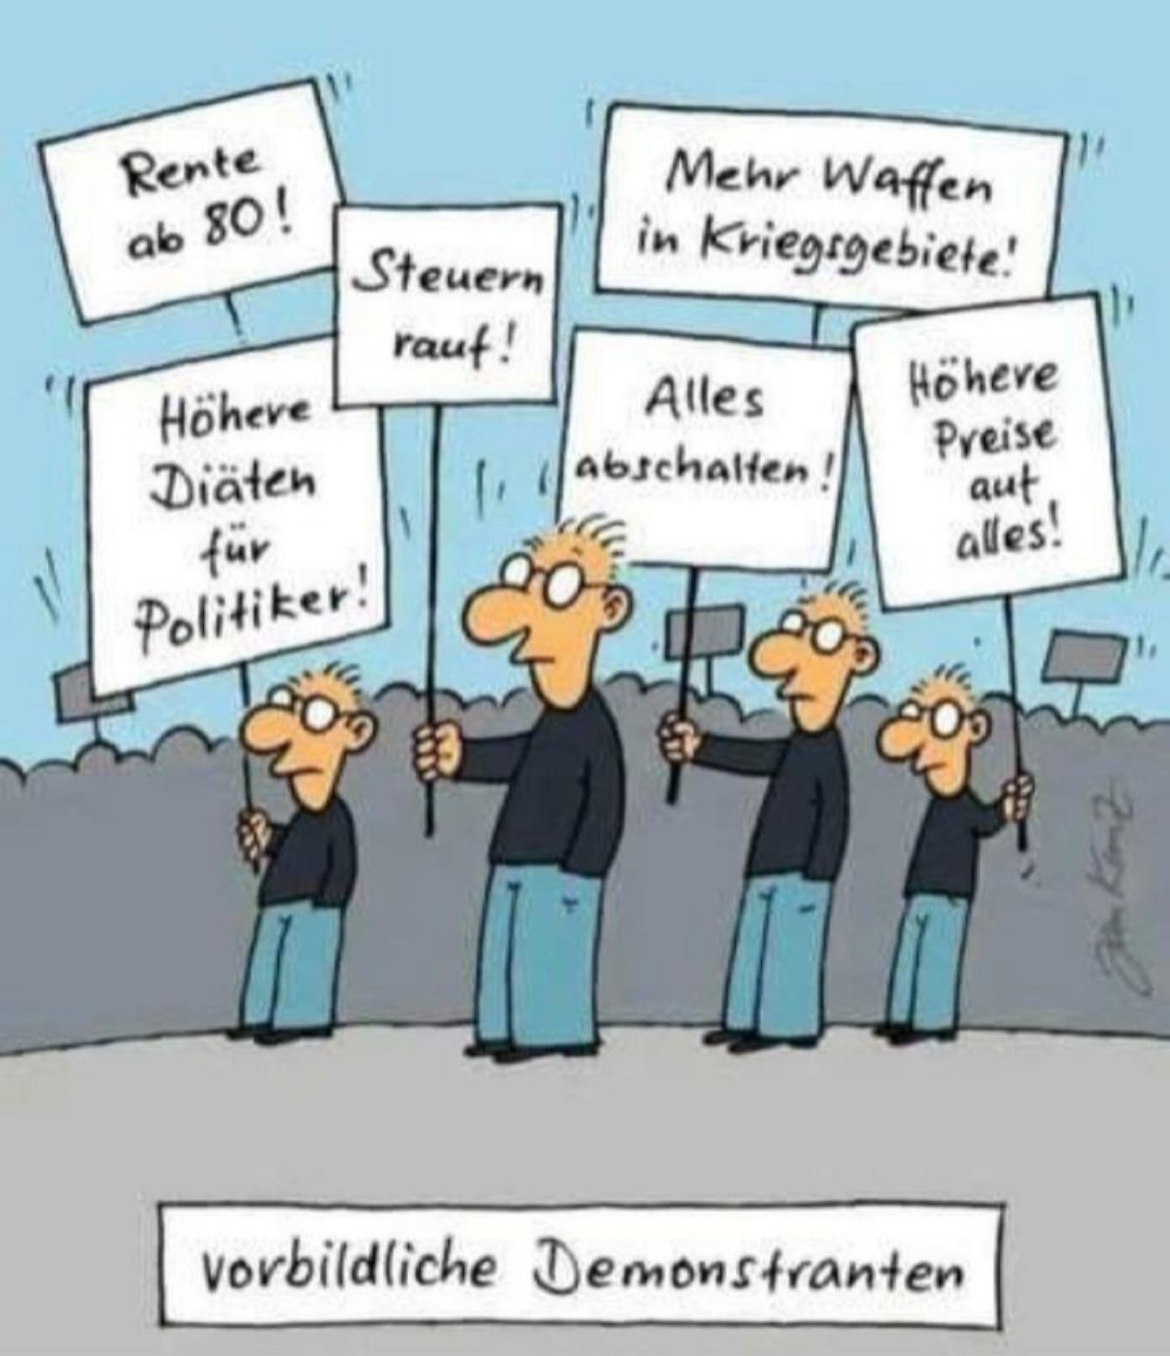 Rente
ab 80!
Steuern
rauf!
Mehr Waffen
in Kriegsgebiete!
Höhere
Diäten
für
Politiker!
Alles
abschalten!
Höhere
Preise
auf
alles!
vorbildliche Demonstranten